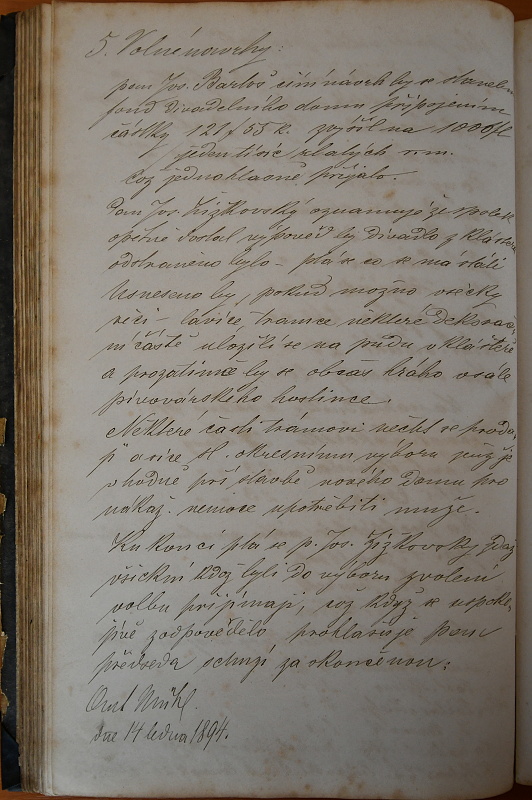 5. Volné návrhy:
pan Jos. Bartoš činí návrh by se stavební
fond divadelního domu připojením
částky 121 f 55 k. zvýšil na 1000 fl
jedentisíc zlatých r.m.
Což jednohlasně přijato.
Pan Jos. Žižkovský oznamuje že spolek
opětně dostal vypověď by divadlo z kláštera
odstraněno bylo – ptá se co se má státi
Usneseno by, pokud možno všecky
věci – lavice tramce některé dekorač
ní části uložili se na půdu v klášteře
a prozatimně by se občas hrálo v sále
pivovárského hostince.
Některé části trámoví nechť se prodá
p a sice sl. okresnímu výboru jenž je
vhodně při stavbě nového domu pro
nákaž. nemoce upotřebiti může.
Ku konci ptá se p. Jos. Žižkovský zdaž
všickni kdož byli do výboru zvoleni
volbu přijímají, což když se uspoko
jivě zodpovědělo prohlašuje pan
předseda schůzi za skončenou.
dne 14 ledna 1894.